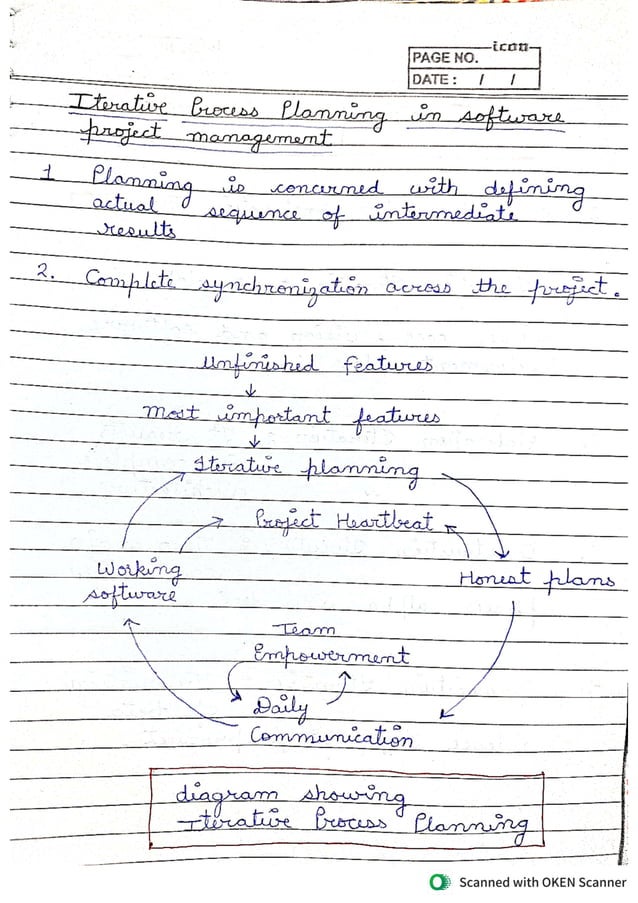 icon
PAGE NO.
DATE : / /
Iterative Process Planning in software
project management
1 Planning is concerned with defining
actual sequence of intermediate
results
2. Complete synchronization across the project.
Unfinished features
↓
Most important features
↓
Iterative planning
Project Heartbeat
Working
software
Honest plans
Team
Empowerment
Daily
Communication
diagram showing
Iterative Process Planning
Scanned with OKEN Scanner